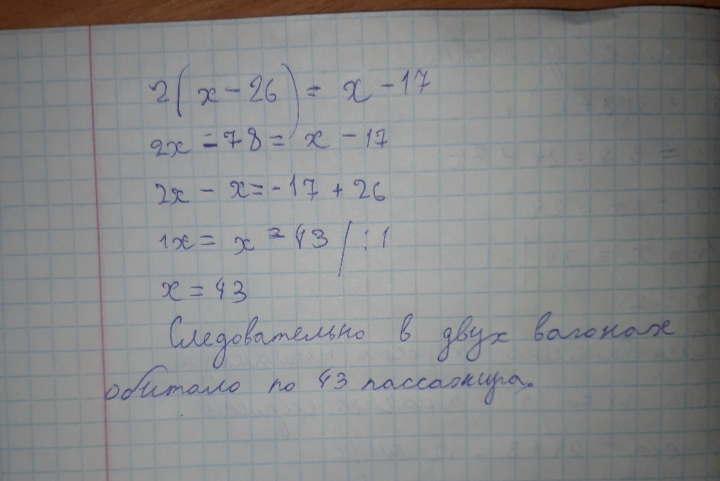 2(x-26) = x-17
2x - 78 = x - 17
2x - x = -17 + 26
1x = x = 43 / : 1
x = 43
Следовательно в двух вагонах
обитало по 43 пассажира.